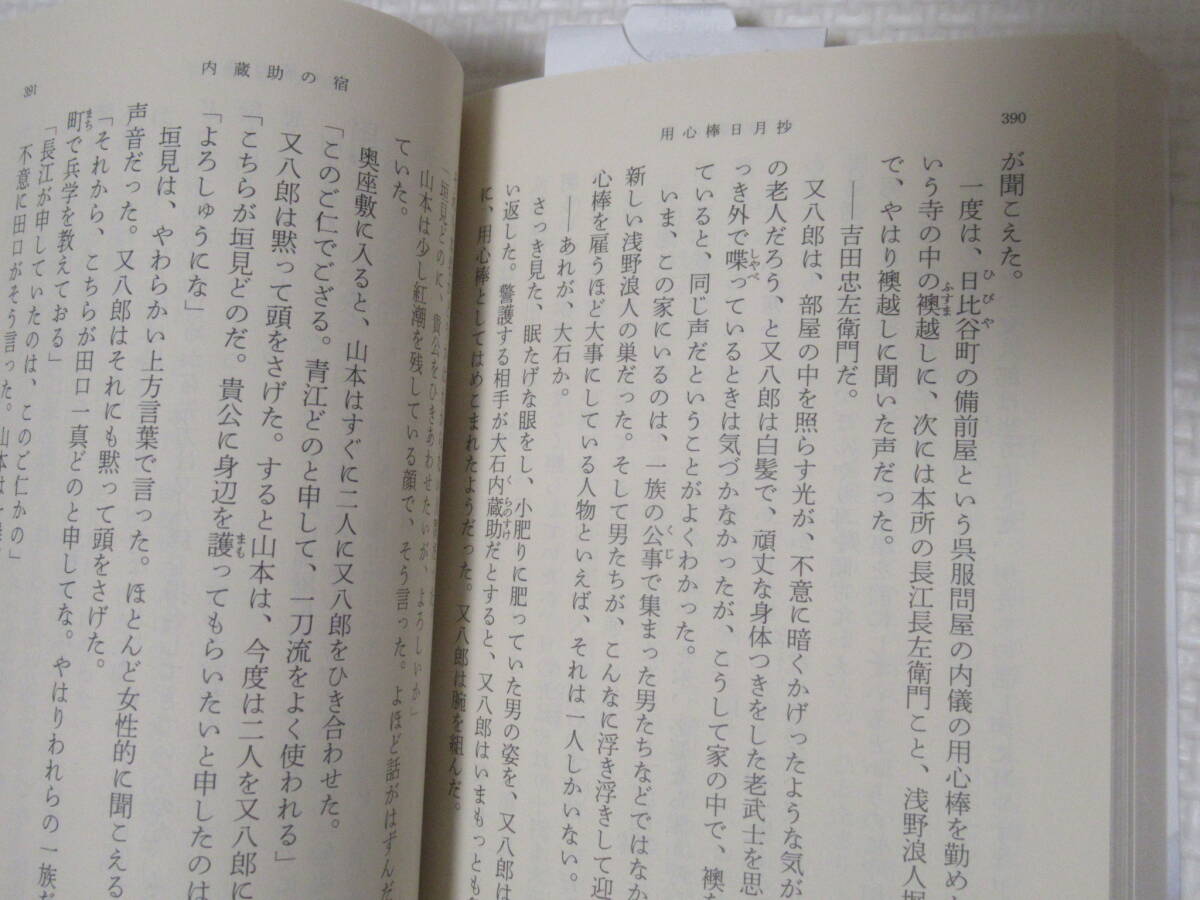 390
用心棒日月抄
が聞こえた。
一度は、日比谷町の備前屋という呉服問屋の内儀の用心棒を勤め
いう寺の中の襖越しに、次には本所の長江長左衛門こと、浅野浪人堀
で、やはり襖越しに聞いた声だった。
――吉田忠左衛門だ。
又八郎は、部屋の中を照らす光が、不意に暗くかげったような気が
の老人だろう、と又八郎は白髪で、頑丈な身体つきをした老武士を思
っき外で喋っているときは気づかなかったが、こうして家の中で、襖
ていると、同じ声だということがよくわかった。
いま、この家にいるのは、一族の公事で集まった男たちなどではなか
新しい浅野浪人の巣だった。そして男たちが、こんなに浮き浮きして迎
心棒を雇うほど大事にしている人物といえば、それは一人しかいない。
――あれが、大石か。
さっき見た、眠たげな眼をし、小肥りに肥っていた男の姿を、又八郎は
い返した。警護する相手が大石内蔵助だとすると、又八郎はいまもっとも
に、用心棒としてはめこまれたようだった。又八郎は腕を組んだ。
391
内蔵助の宿
「垣見どのに、貴公をひきあわせたいが、よろしいか」
山本は少し紅潮を残している顔で、そう言った。よほど話がはずんだ
ていた。
奥座敷に入ると、山本はすぐに二人に又八郎をひき合わせた。
「このご仁でござる。青江どのと申して、一刀流をよく使われる」
又八郎は黙って頭をさげた。すると山本は、今度は二人を又八郎に
「こちらが垣見どのだ。貴公に身辺を護ってもらいたいと申したのは
「よろしゅうにな」
垣見は、やわらかい上方言葉で言った。ほとんど女性的に聞こえる
声音だった。又八郎はそれにも黙って頭をさげた。
「それから、こちらが田口一真どのと申してな。やはりわれらの一族だ
町で兵学を教えておる」
「長江が申していたのは、このご仁かの」
不意に田口がそう言った。山本は